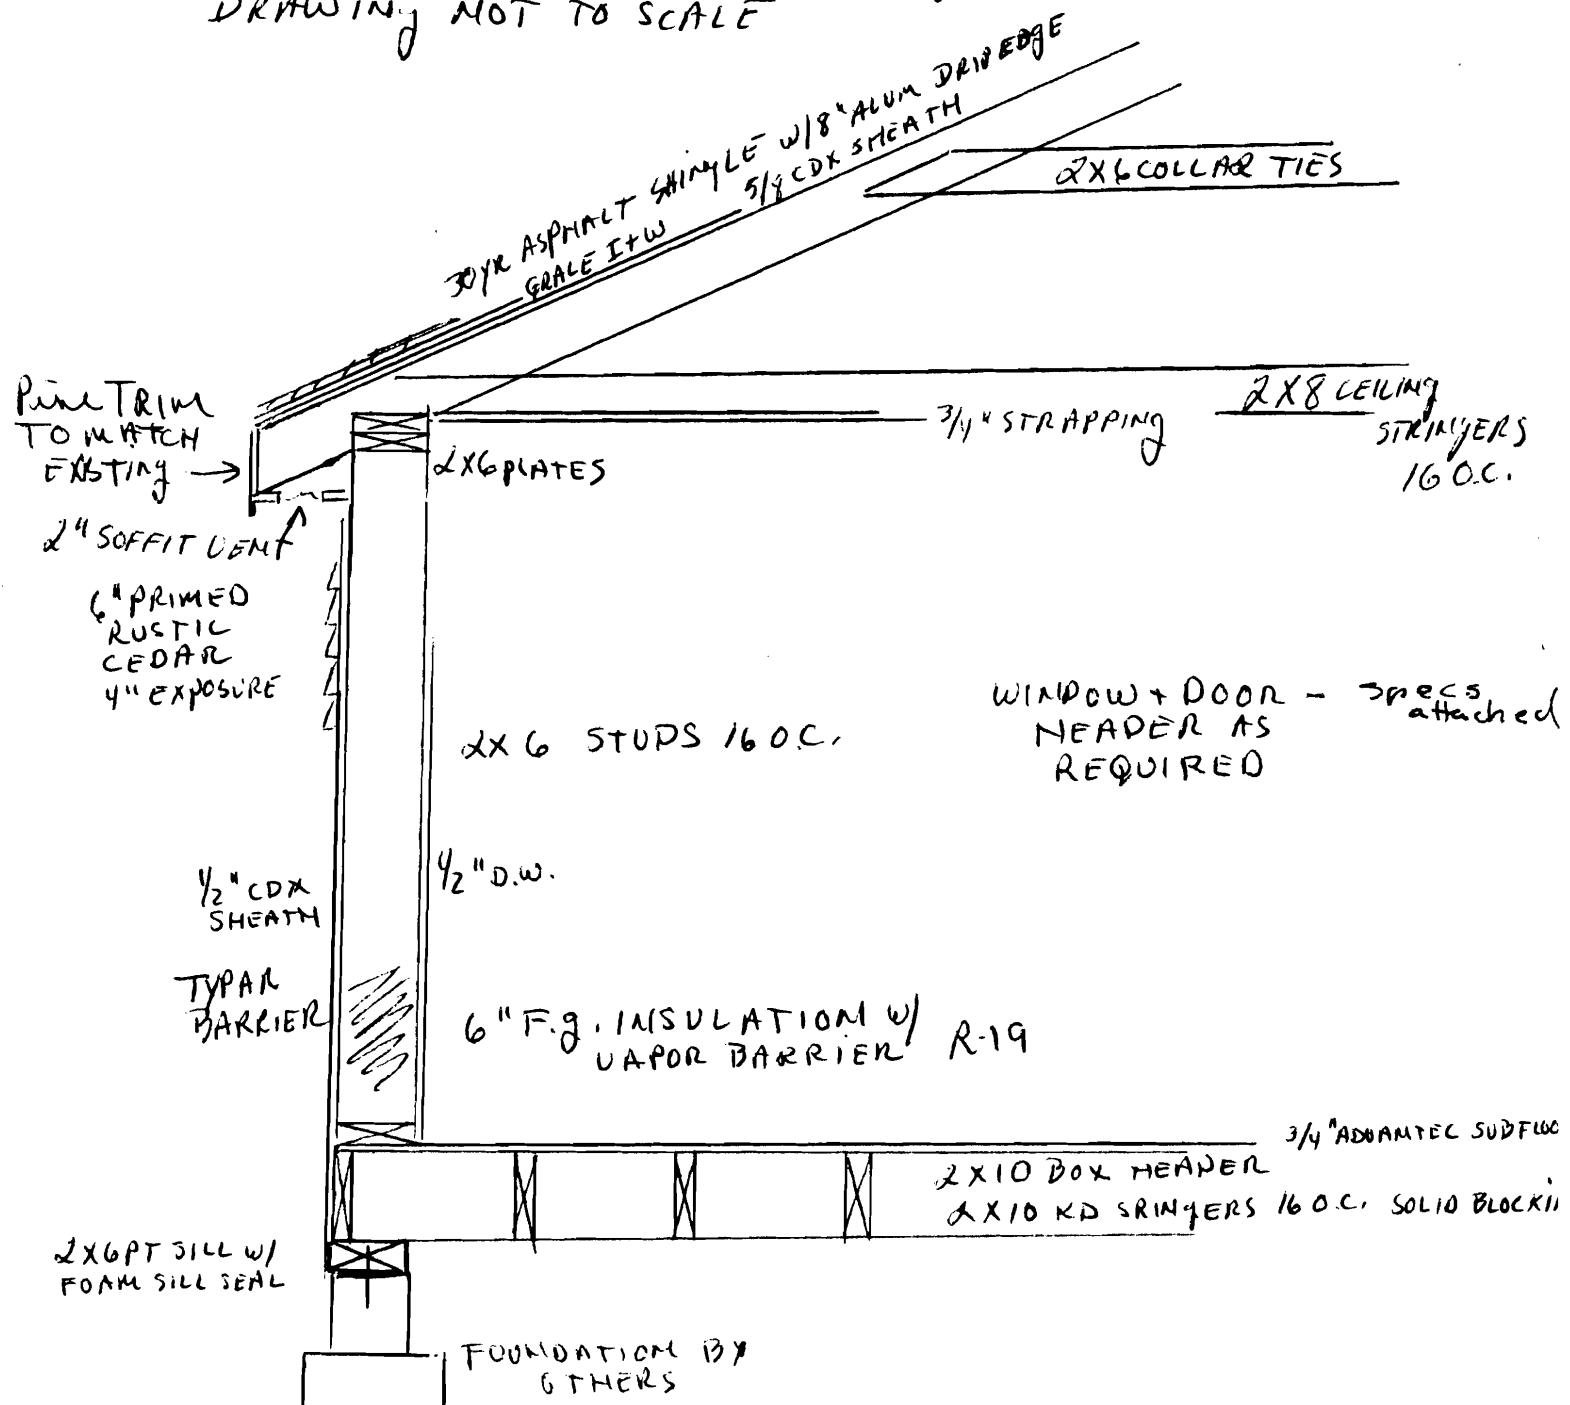 DRAWING NOT TO SCALE
30 YR ASPHALT SHINGLE W/8" ALUM DRIPEDGE
GRALE I+W
5/8 CDX SHEATH
2X6 COLLAR TIES
Pine TRIM
TO MATCH
EXISTING
2X6 PLATES
3/4" STRAPPING
2X8 CEILING
STRINGERS
16 O.C.
2" SOFFIT VENT
6" PRIMED
RUSTIC
CEDAR
4" EXPOSURE
2X6 STUDS 16 O.C.
WINDOW + DOOR - specs
attached
HEADER AS
REQUIRED
1/2" CDX
SHEATH
1/2" D.W.
TYPAR
BARRIER
6" F.g. INSULATION W/
VAPOR BARRIER R-19
3/4" ADVANTEC SUBFLOO
2X10 BOX HEADER
2X10 KD SRINGERS 16 O.C. SOLID BLOCKI
2X6 PT SILL W/
FOAM SILL SEAL
FOUNDATION BY
OTHERS